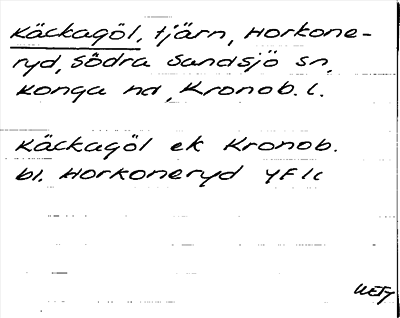 Käckagöl, tjärn, Horkone-
ryd, Södra Sandsjö sn,
Konga hd, Kronob. l.
Käckagöl ek Kronob.
bl. Horkoneryd YF1c